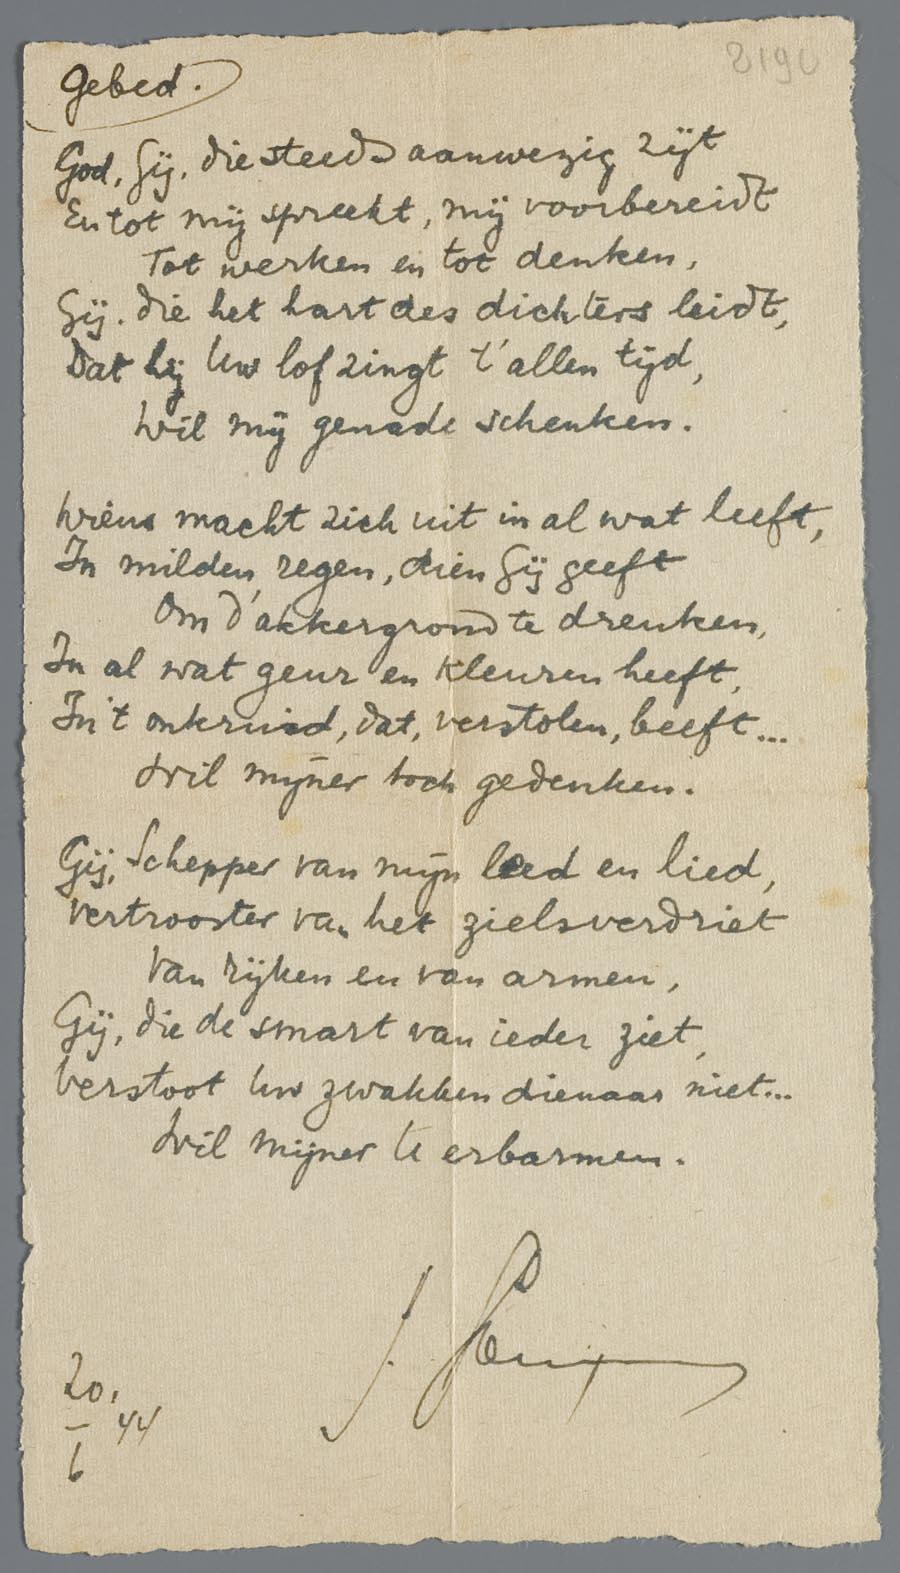 8190
Gebed.
God, Gij, die steeds aanwezig zijt
En tot mij spreekt, mij voorbereidt
Tot werken en tot denken,
Gij, die het hart des dichters leidt,
Dat hij Uw lof zingt t'allen tijd,
Wil mij genade schenken.
Wiens macht zich uit in al wat leeft,
In milden regen, dien Gij geeft
Om d'akkergrond te drenken,
In al wat geur en kleuren heeft,
In 't onkruid, dat, verstolen, beeft...
Wil mijner toch gedenken.
Gij, Schepper van mijn leed en lied,
Vertrooster van het zielsverdriet
Van rijken en van armen,
Gij, die de smart van ieder ziet,
Verstoot Uw zwakken dienaar niet...
Wil mijner te erbarmen.
J.
20, 44
6